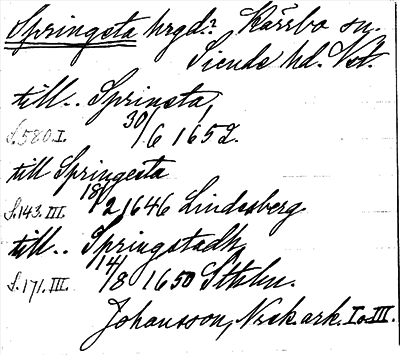 Springsta hrgd? Kärrbo sn.
Siende hd. Vst.
till.. Sprinsta,
S.580.I. 30/6 1652.
till Springesta
S.143.III. 18/2 1646 Lindesberg
till.. Springstadh,
S.171.III. 14/8 1650 Sthlm.
Johansson, Nrsk.ark. I o. III.